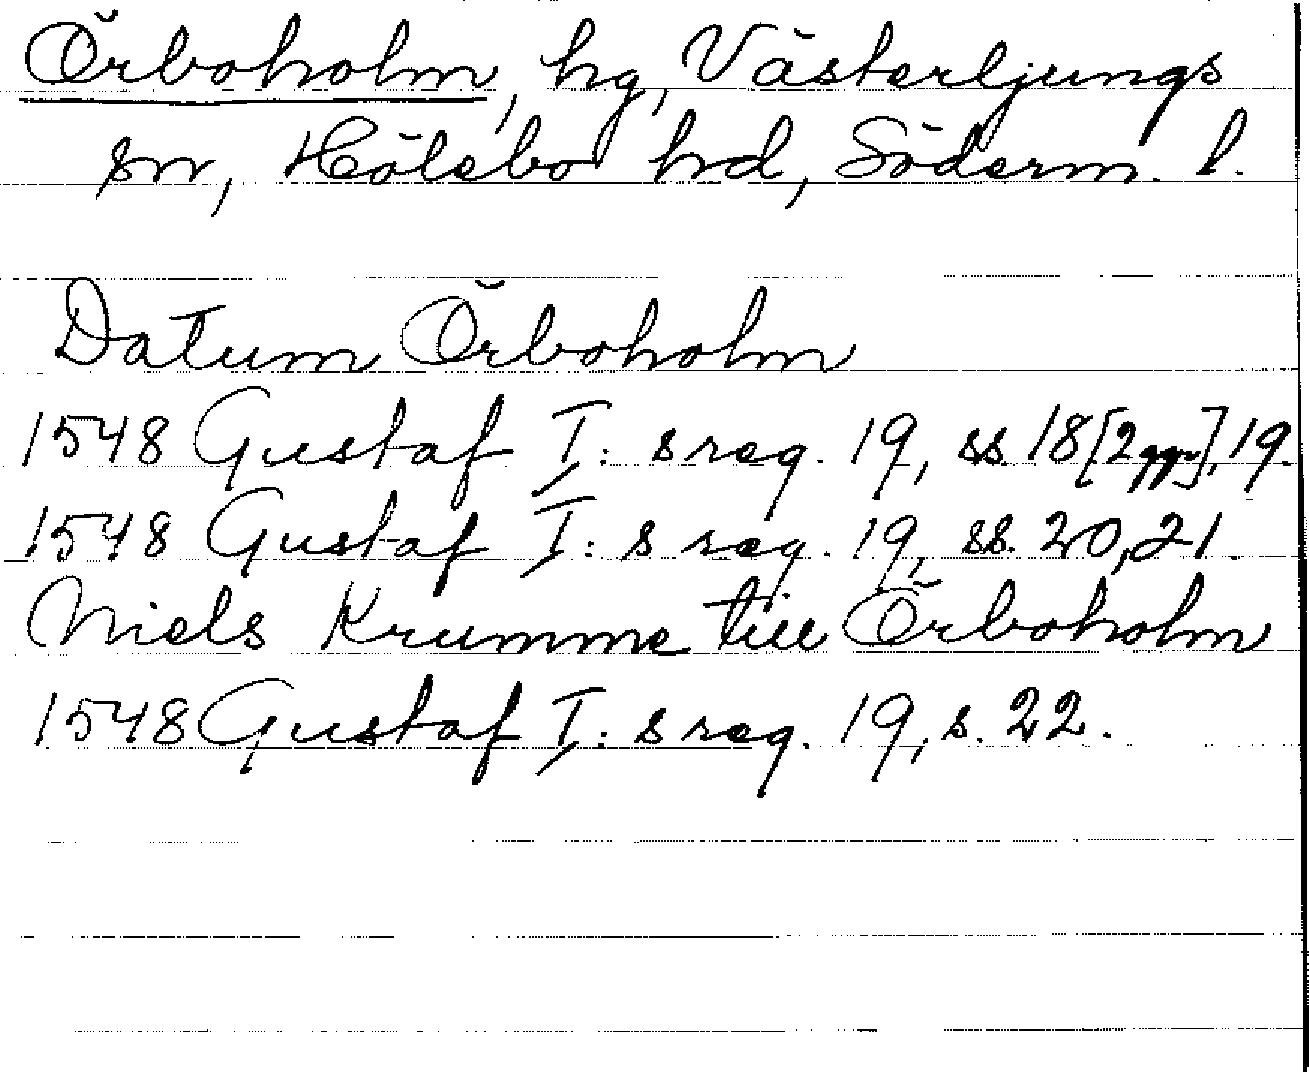 Örboholm, hg, Västerljungs
sn, Hölebo hd, Söderm. l.
Datum Örboholm
1548 Gustaf I: s reg. 19, ss 18[2ggr], 19.
1548 Gustaf I: s reg. 19, ss. 20, 21.
Niels Krumme till Örboholm
1548 Gustaf I: s reg. 19, s. 22.